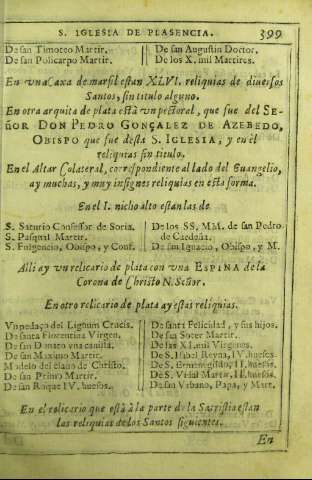 S. IGLESIA DE PLASENCIA. 399
De san Timoteo Martir.
De san Policarpo Martir.
De san Augustin Doctor.
De los X. mil Martires.
En vna Caxa de marfil estan XLVI. reliquias de diuersos
Santos, sin titulo alguno.
En otra arquita de plata està vn pectoral, que fue del SE-
ñOR DON PEDRO GONÇALEZ DE AZEBEDO,
OBISPO que fue desta S. IGLESIA, y en èl
reliquias sin titulo.
En el Altar Colateral, correspondiente al lado del Euangelio,
ay muchas, y muy insignes reliquias en esta forma.
En el I. nicho alto estan las de
S. Saturio Confessor de Soria.
S. Pasqual Martir.
S. Fulgencio, Obispo, y Conf.
De los SS. MM. de san Pedro
de Cardeña.
De san Ignacio, Obispo, y M.
Alli ay vn relicario de plata con vna ESPINA de la
Corona de Christo N. Señor.
En otro relicario de plata ay estas reliquias.
Vn pedaço del Lignum Crucis.
De santa Florentina Virgen.
De san Donato vna canilla.
De san Maximo Martir.
Modelo del clauo de Christo.
De san Primo Martir.
De san Roque IV. huesos.
De santa Felicidad, y sus hijos.
De san Soter Martir.
De las XI. mil Virgines.
De S. Isabel Reyna, IV. huesos.
De S. Ermenegildo, II. huesos.
De S. Vidal Martir, II. huesos.
De san Vrbano, Papa, y Mart.
En el relicario que està à la parte de la Sacristia estan
las reliquias de los Santos siguientes.
En